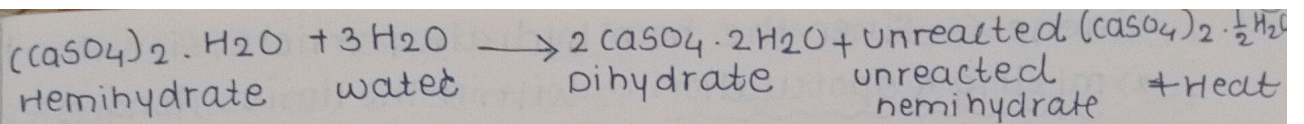 (CaSO4)2 . H2O + 3H2O ⟶ 2 CaSO4 . 2H2O + Unreacted (CaSO4)2 . 1/2 H2O
Hemihydrate water Dihydrate unreacted + Heat
hemihydrate